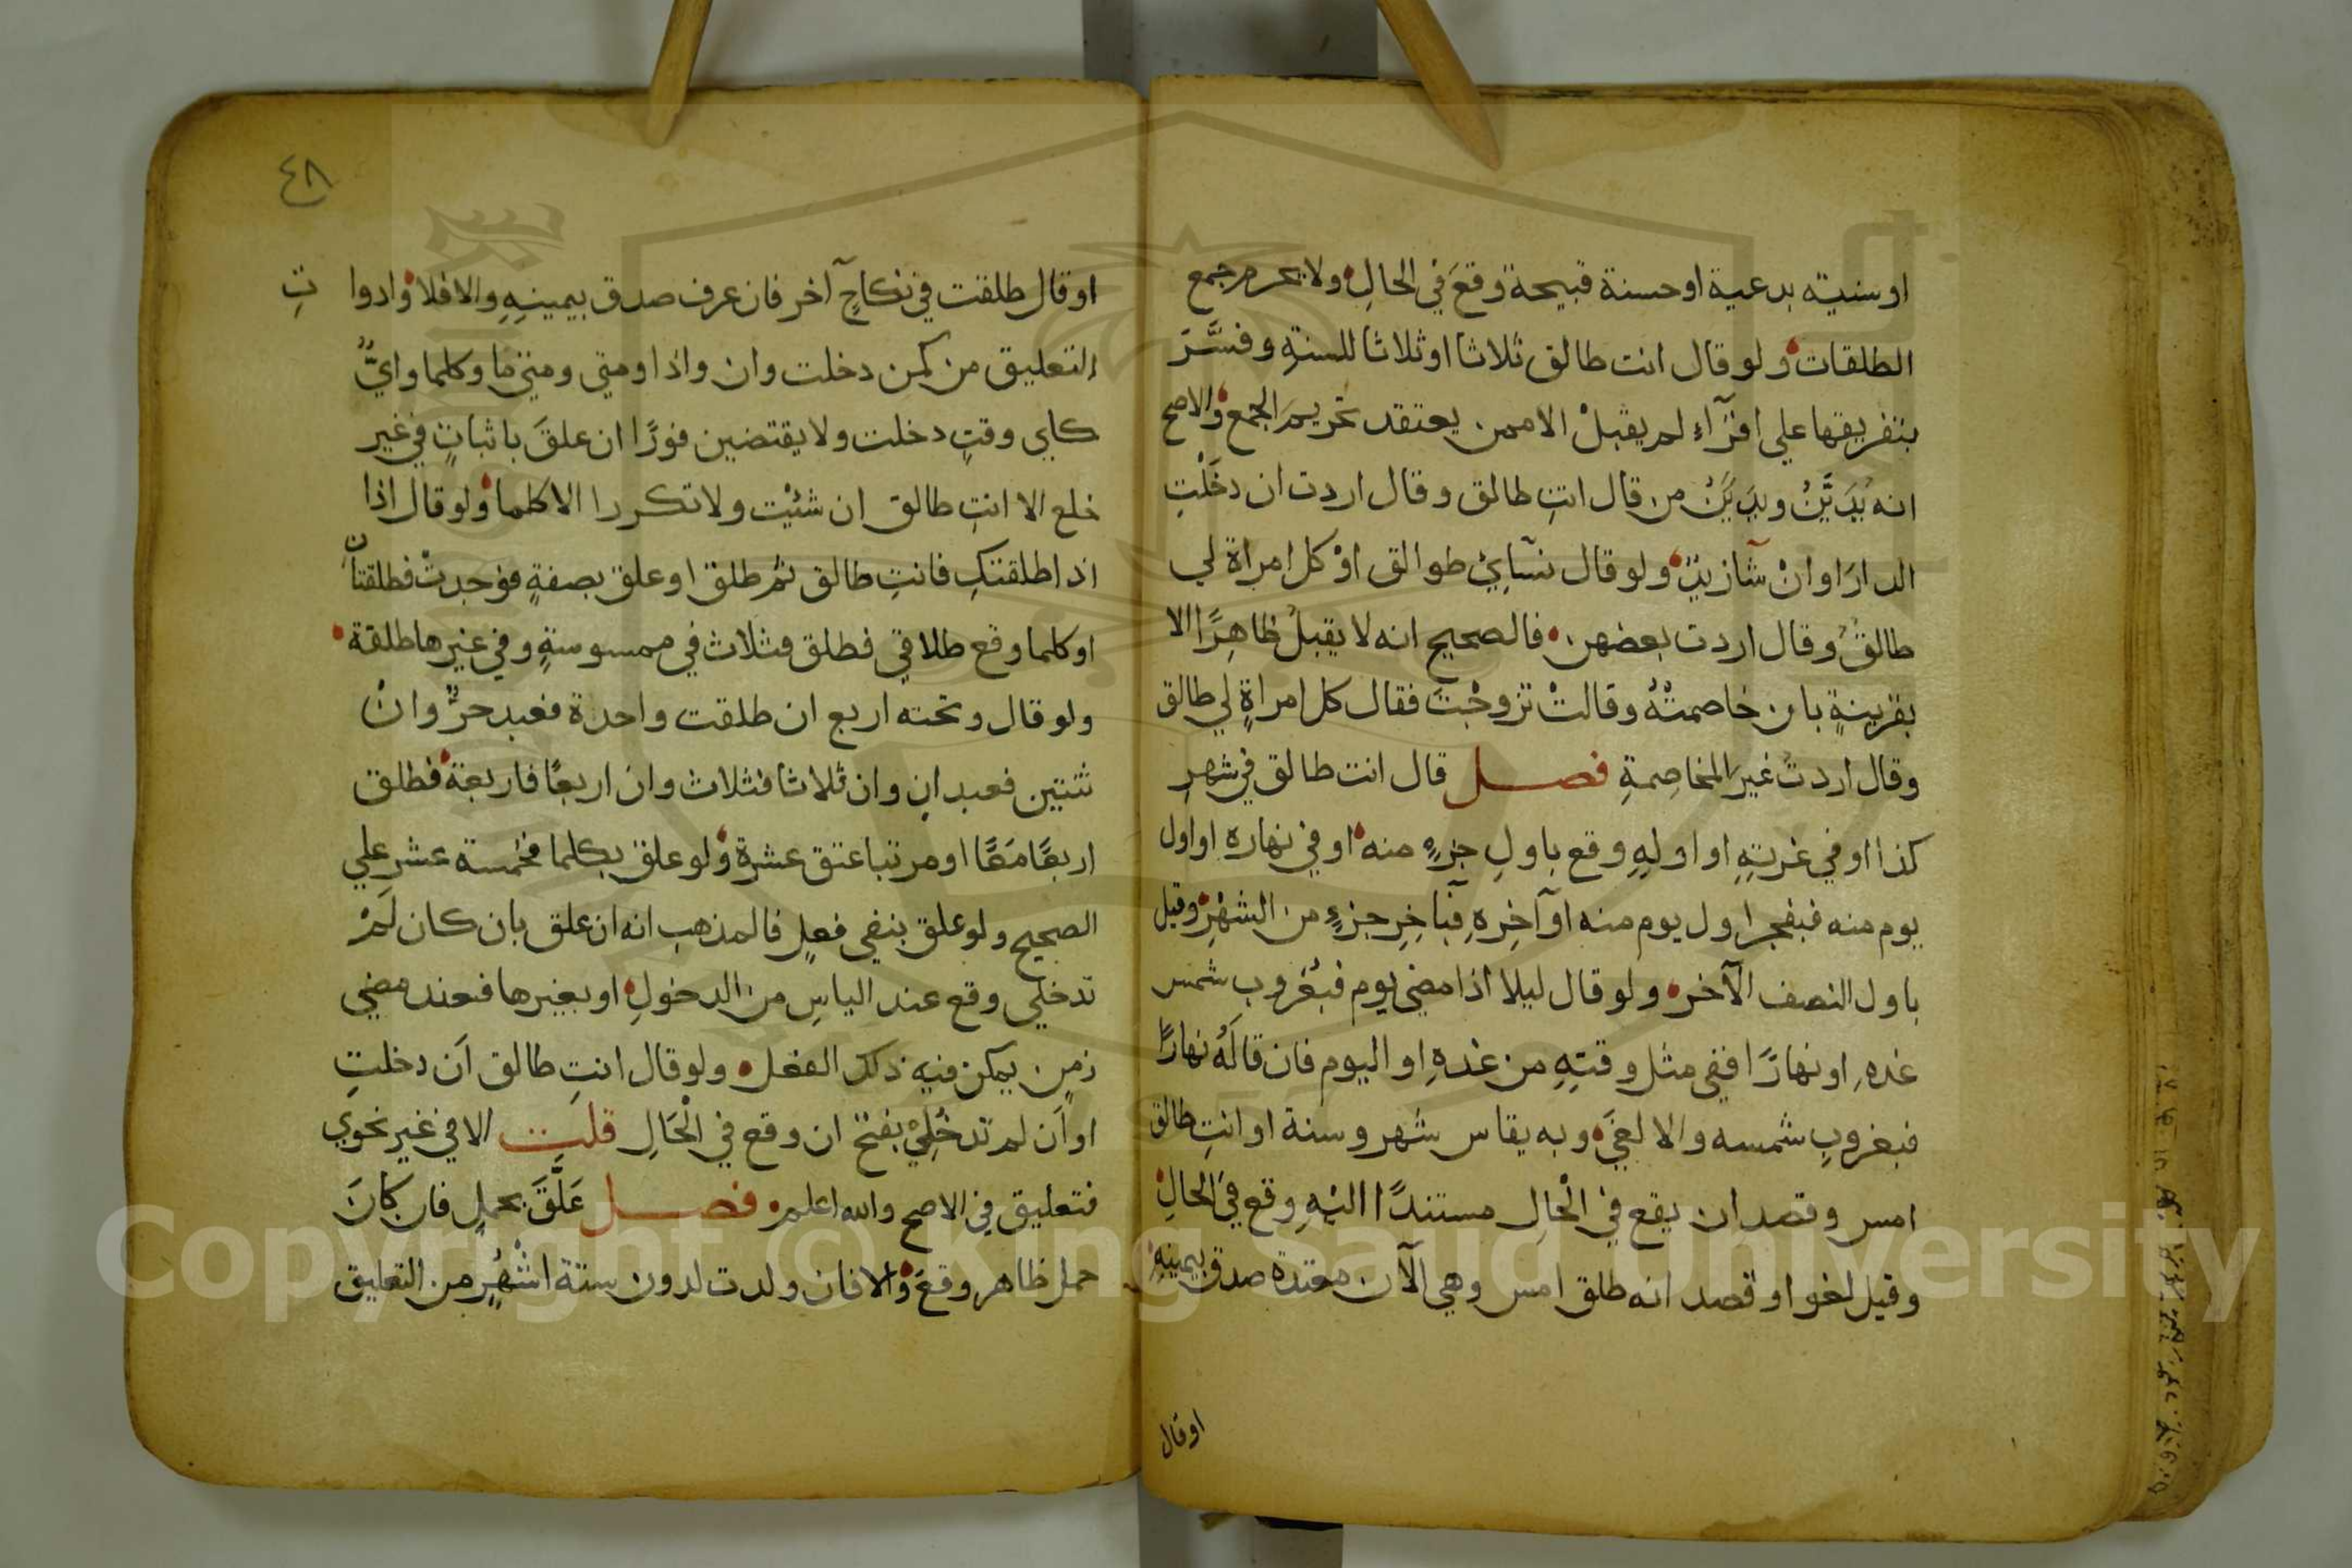 او سنيته بدعية او حسنة قبيحة وقعَ في الحالِ ولا يحرم جمع
الطلقات ولو قال انت طالق ثلاثا او ثلاثا للسنةِ وفسَّرَ
بتفريقها علي اقرآءٍ لم يقبلْ الا ممن يعتقد تحريمَ الجمع والاصح
انه يُدَيَّنُ ويدَيَّنُ من قال انتِ طالق وقال اردت ان دخَلْتِ
الدارَ او انْ شآ زيدٌ ولو قال نسآئِيْ طوالق اوْ كل امراة لي
طالقٌ وقال اردت بعضهن فالصحيح انه لا يقبلُ ظاهِرًا الا
بقرينةٍ بان خاصمتْهُ وقالتْ تزوجْتَ فقال كل امراةٍ لي طالق
وقال اردتُ غيرَ المخاصِمةِ فصل قال انت طالق في شهرِ
كذا او في غرتِهِ او اولِهِ وقع باولِ جزءٍ منه او في نهاره او اول
يوم منه فبفجر اول يوم منه او آخِرِهِ فبآخِرِ جزءٍ من الشهْرِ وقيل
باول النصف الآخر ولو قال ليلا اذا مضي يوم فبغروب شمس
غدهِ او نهارًا ففي مثل وقتِهِ من غدهِ او اليوم فان قالَهُ نهارًا
فبغروبِ شمسه والا لغيَ وبه يقاس شهر وسنة او انتِ طالق
امس وقصد ان يقع في الْحالِ مستندًا اليْهِ وقع في الحالِ
وقيل لغو او قصد انه طلق امس وهي الآن معتدة صدق بيمينِهِ
او قال
٤٨
او قال طلقت في نكاحٍ آخر فان عرف صدق بيمينِهِ والا فلا وادوا تِ
التعليق من كمن دخلت وان واذا ومتي ومتي ما وكلما وايُّ
كاي وقتِ دخلت ولا يقتضين فورًا ان علقَ باثباتٍ في غير
خلع الا انتِ طالق ان شئْتِ ولا تكررا الا كلما ولو قال اذا
اذا طلقتكِ فانتِ طالق ثم طلق او علق بصفةٍ فوُجدتْ فطلقتانِ
او كلما وقع طلاقي فطلق فثلاث في ممسوسةٍ وفي غيرها طلقة
ولو قال وتحته اربع ان طلقت واحدة فعبد حرٌّ وانْ
ثنتين فعبدانِ وان ثلاثا فثلاث وان اربعًا فاربعة فطلق
اربعًا مَعًا او مرتبا عتق عشرة ولو علق بكلما فخمسة عشر علي
الصحيح ولو علق بنفي فعلٍ فالمذهب انه ان علق بان كان لَمْ
تدخلي وقع عند الياسِ من الدخولِ او بغيرها فعند مضي
زمن يمكن فيه ذلك الفعل ولو قال انتِ طالق اَن دخلتِ
او اَن لم تدخُلِيْ بفتح ان وقع في الْحَالِ قلت الا في غير نحوي
فتعليق في الاصح والله اعلم فصل عَلَّقَ بحملٍ فان كانَ
حمل ظاهر وقعَ والا فان ولدت لدون ستة اشْهُرٍ من التعليق
Copyright © King Saud University